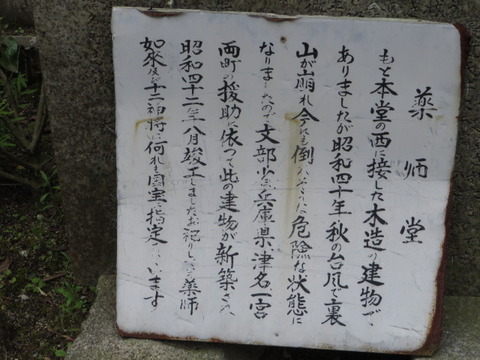 薬師堂
もと本堂の西に接した木造の建物で
ありましたが昭和四十年秋の台風で裏
山が崩れ今にも倒れそうな危険な状態に
なりましたので文部省兵庫県津名一宮
両町の援助に依つて此の建物が新築され
昭和四十二年八月竣工しましたお祀りしてある薬師
如来及び十二神将は何れも国宝に指定されています